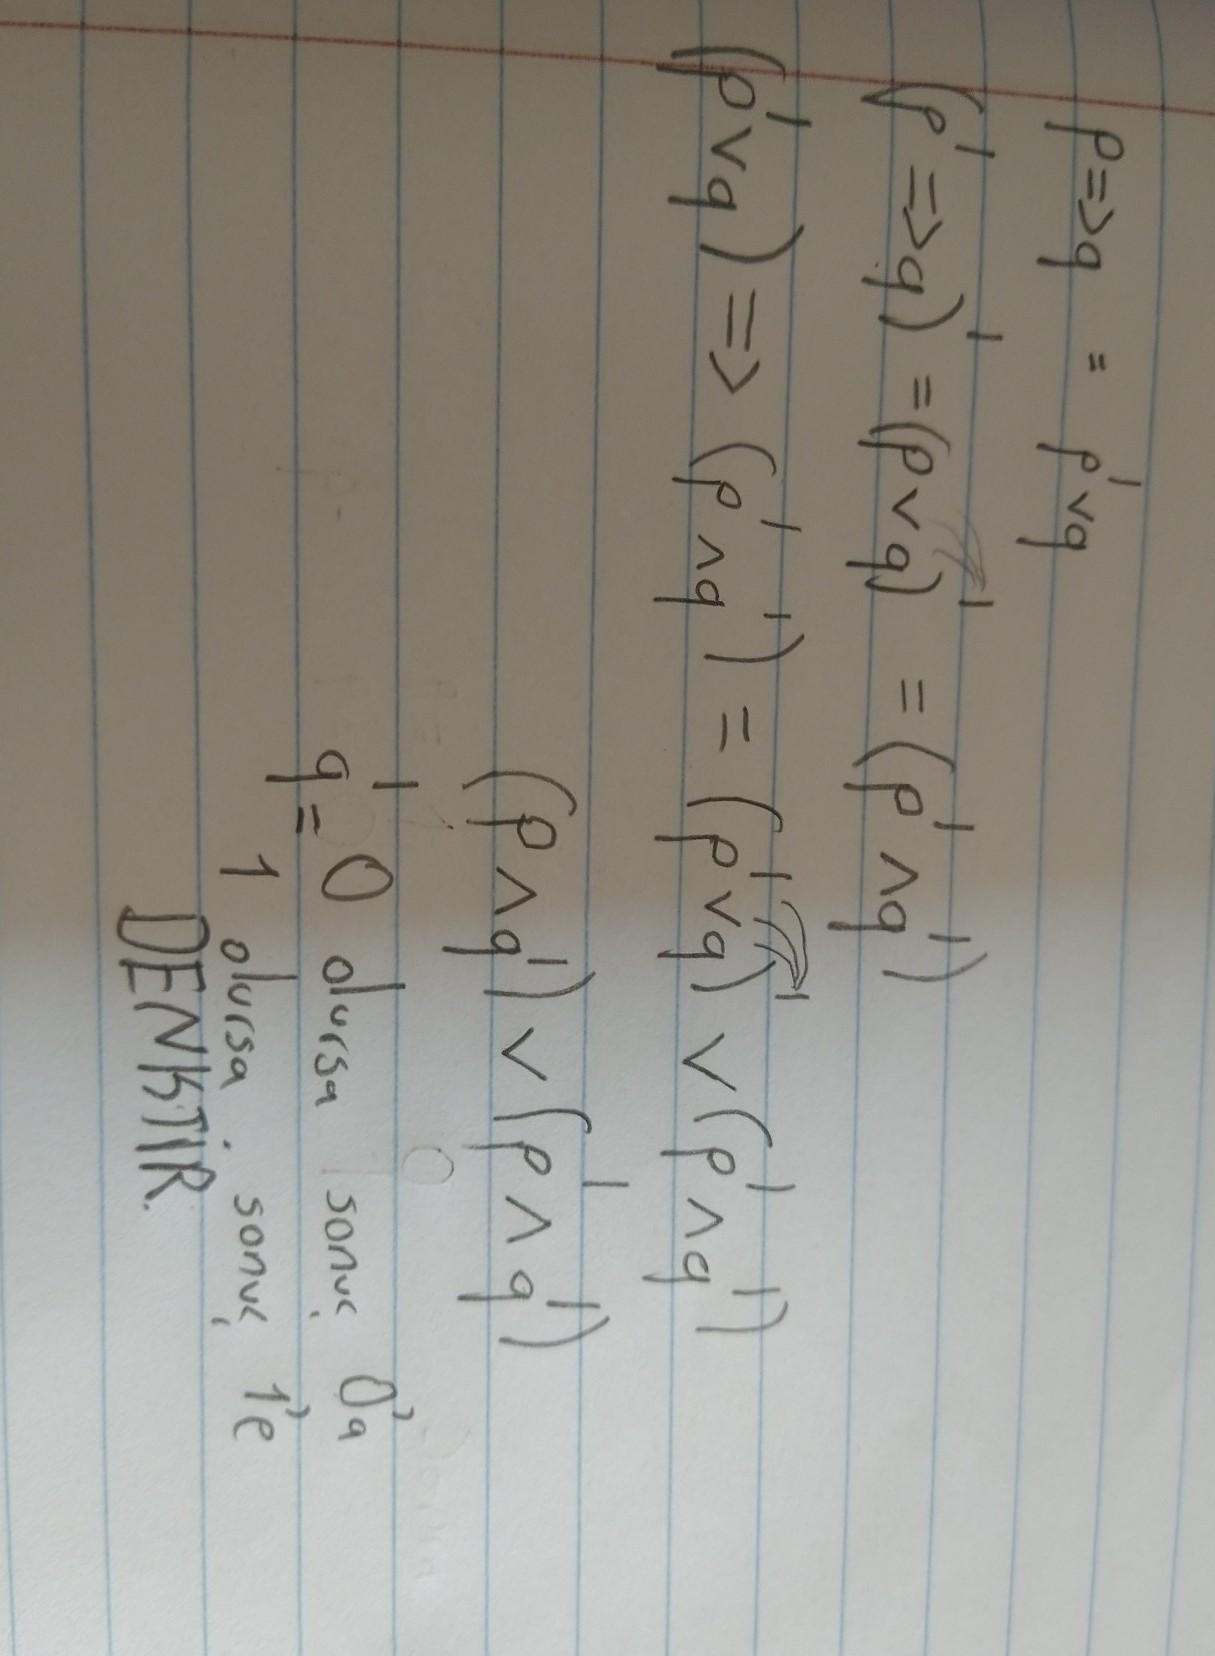 p=>q = p'vq
(p'=>q)' = (pvq)' = (p'∧q')
(p'vq) => (p'∧q') = (p'vq)' v (p'∧q')
(p∧q') v (p'∧q')
q' = 0 olursa sonuç 0'a
1 olursa sonuç 1'e
DENKTİR.